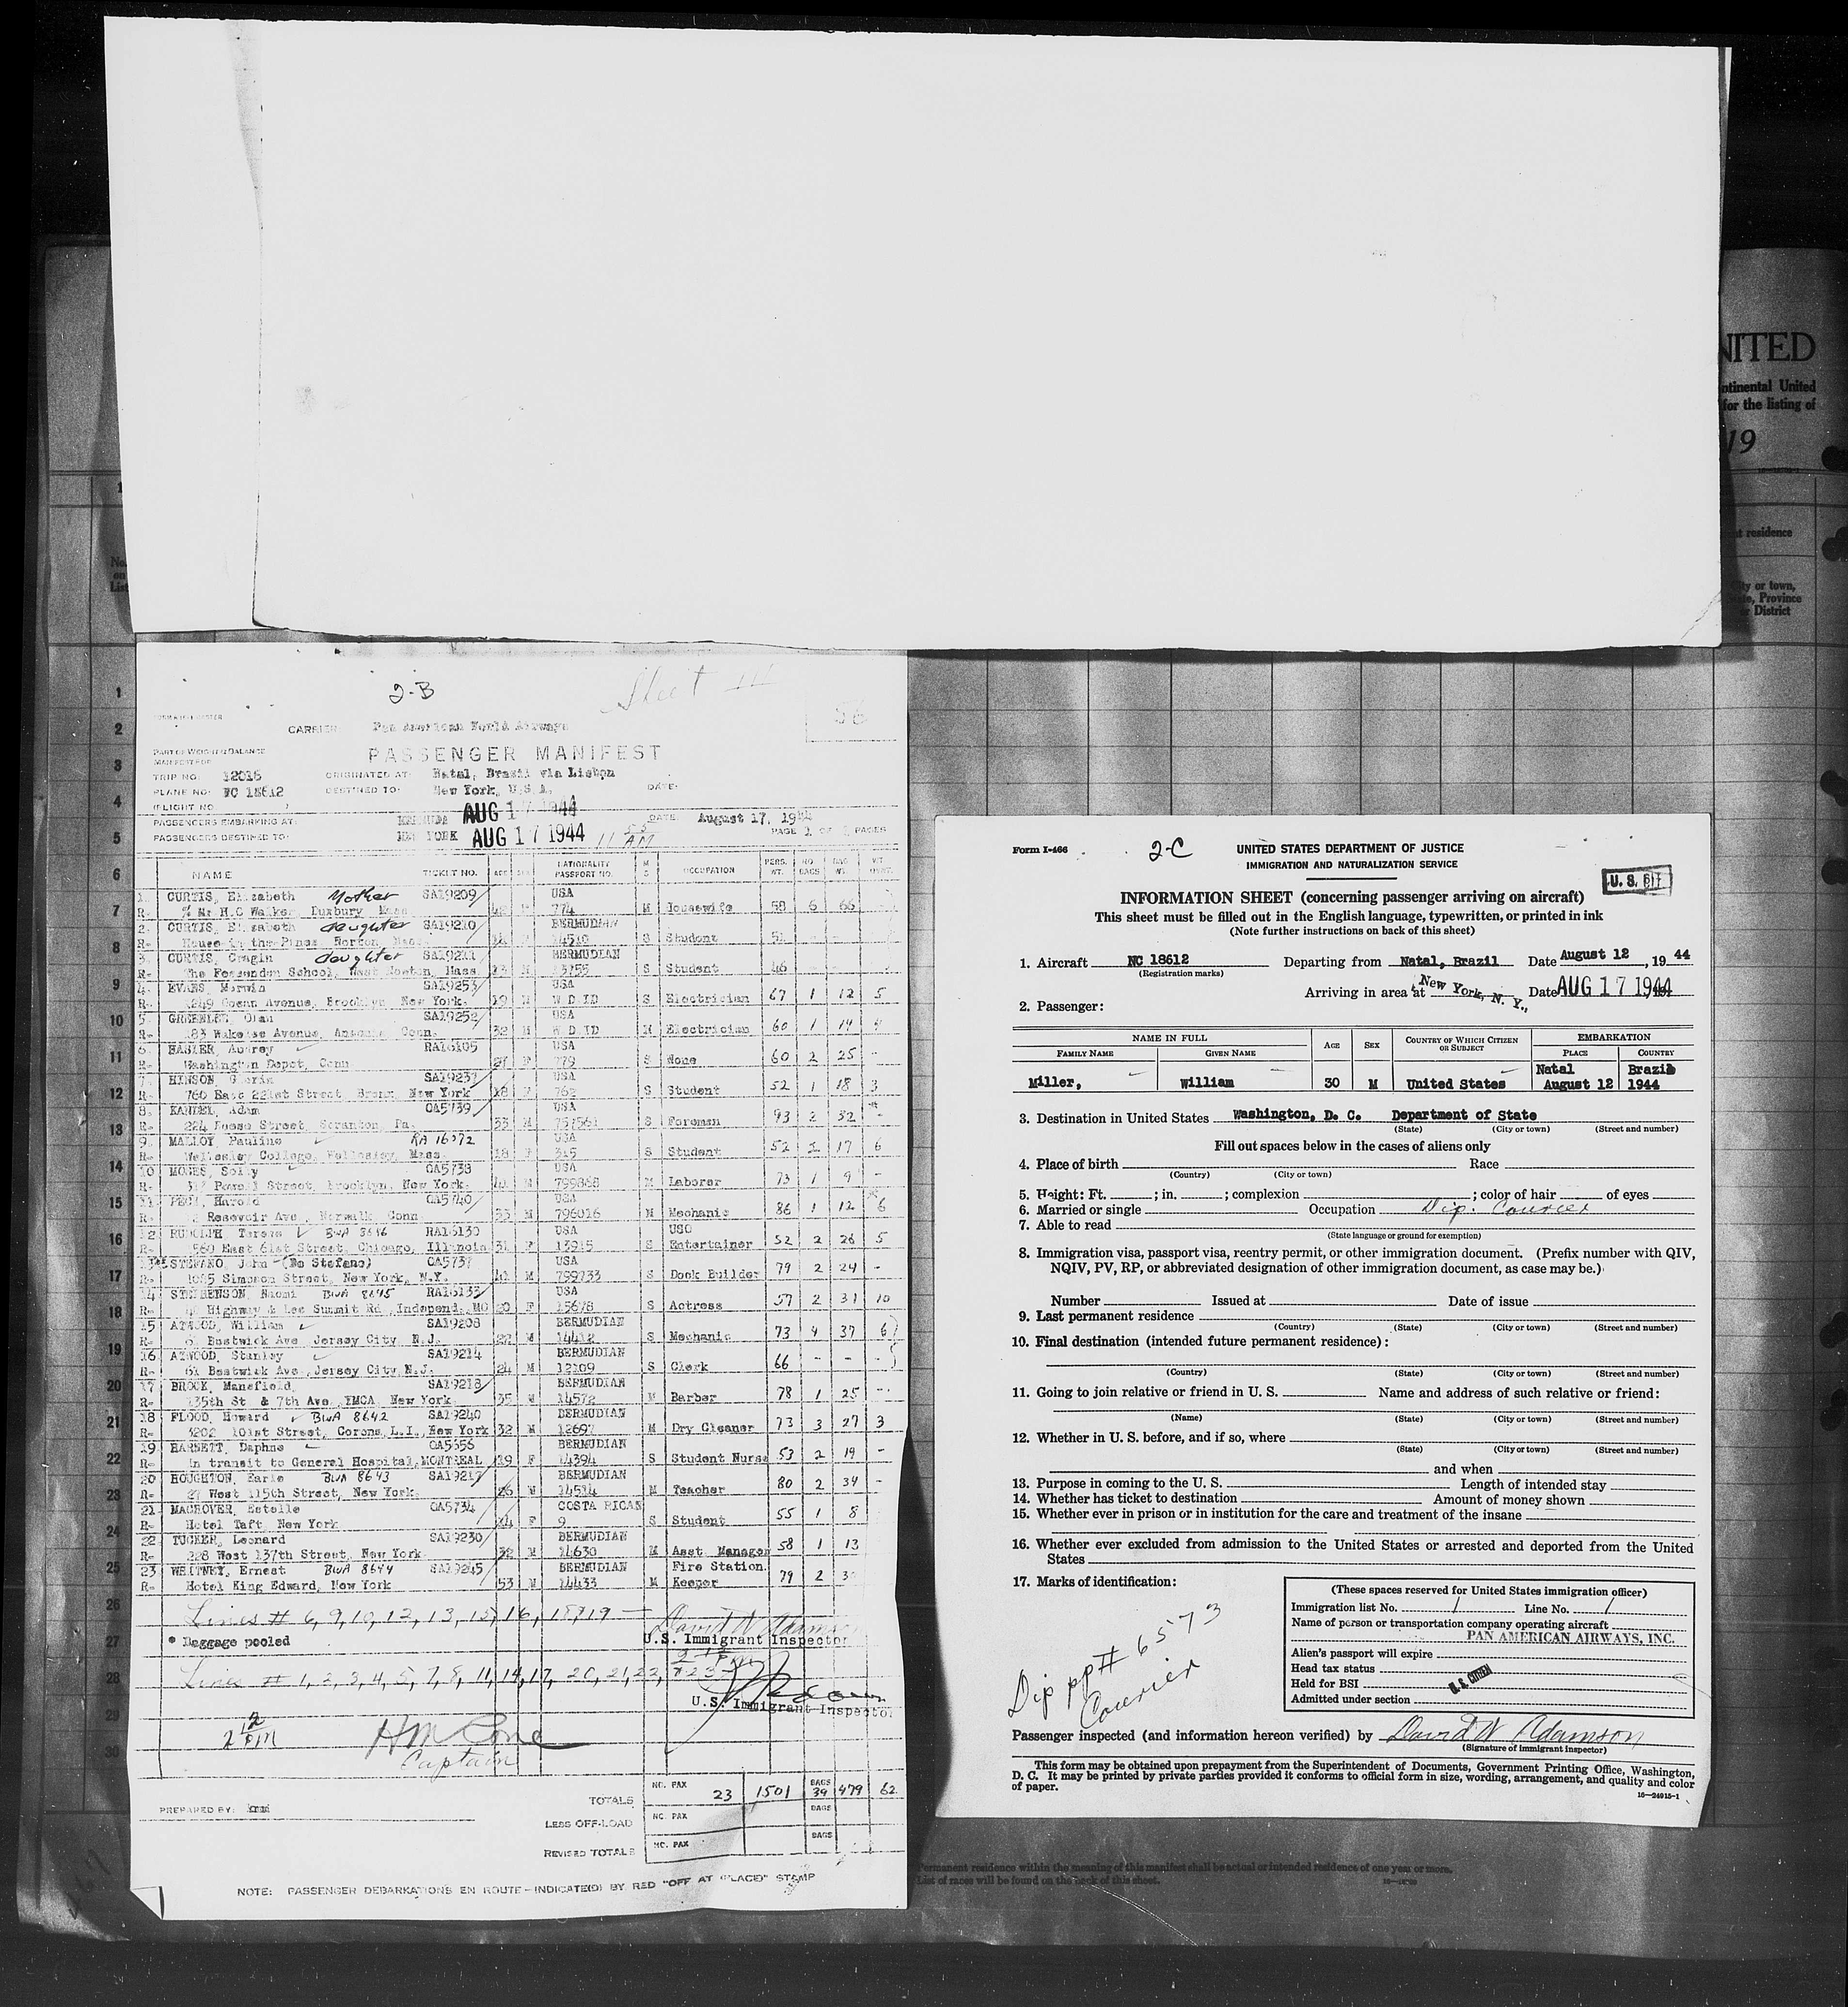 NITED
ntinental United
for the listing of
19
residence
ty or town,
Province
District
No.
on
List
2-B
Sheet
56
CARRIER Pan American World Airways
PASSENGER MANIFEST
PART OF WEIGHT & BALANCE
MANIFEST FOR
TRIP NO. 12016 ORIGINATED AT: Natal, Brazil via Lisbon
PLANE NO: NC 18612 DESTINED TO: New York, U.S.A. DATE:
FLIGHT NO.
PASSENGERS EMBARKING AT: BERMUDA AUG 17 1944 DATE August 17, 1944
PASSENGERS DESTINED TO: NEW YORK AUG 17 1944 11 55 AM PAGE 1 OF PAGES
NAME TICKET NO. AGE SEX NATIONALITY PASSPORT NO. M S OCCUPATION PERS. WT. NO BAGS BAG WT. WT
1. CURTIS, Elizabeth Mother SA19209 USA
R- % Mr H.C Walker Duxbury Mass 774 M Housewife 58 6 66
2. CURTIS, Elizabeth daughter SA19210 BERMUDIAN
R- House in the Pines Norton, Mass. 14510 S Student 51
3. CURTIS, Cragin daughter SA19211 BERMUDIAN
R- The Fessenden School, West Newton, Mass 13 M 13755 S Student 46
4. EVANS, Merwin SA19253 USA
R. 1249 Ocean Avenue, Brooklyn New York. 19 M W D ID S Electrician 67 1 12 5
5. GREENLEE, Olan SA19252 USA
R- 183 Wakelee Avenue, Ansonia Conn. 32 M W D ID M Electrician 60 1 14 4
6. HASLER, Audrey RA16105 USA
R- Washington Depot, Conn. 21 F 779 S None 60 2 25 -
7. HINSON, Gloria SA19237 USA
R- 760 East 221st Street Bronx New York 18 F 762 S Student 52 1 18 3
8. KANDEL, Adam OA5739 USA
R- 224 Reese Street, Scranton, Pa. 33 M 757561 S Foreman 93 2 32 -
9. MALLOY, Pauline RA 16072 USA
R- Wellesley College, Wellesley, Mass. 18 F 315 S Student 52 2 17 6
10 MOSES, Solly OA5738 USA
R. Powell Street, Brooklyn, New York. 41 M 799868 M Laborer 73 1 9 -
11. PECK, Harold OA5740 USA
R. Resevoir Ave., Norwalk Conn. 33 M 796016 M Mechanic 86 1 12 6
12 RUDOLPH, Teresa BWA 8646 RA16130 USA USO
R- 560 East 61st Street, Chicago, Illinois 31 F 13915 S Entertainer 52 2 26 5
13 STEFANO, John (De Stefano) OA5737 USA
R- 1055 Simpson Street, New York, N.Y. 41 M 799733 S Dock Builder 79 2 24 -
14 STEVENSON, Naomi BWA 8645 RA16133 USA
R- 40 Highway & Lee Summit Rd, Independ. MO 20 F 15678 S Actress 57 2 31 10
15 ATWOOD, William SA19208 BERMUDIAN
R- 61 Bostwick Ave Jersey City N.J. 22 M 14412 S Mechanic 73 4 37 6
16 ATWOOD, Stanley SA19214 BERMUDIAN
R- 61 Bostwick Ave, Jersey City N.J. 24 M 12109 S Clerk 66 - - -
17 BROOK, Mansfield, SA19218 BERMUDIAN
R- 135th St & 7th Ave YMCA, New York 35 M 14572 M Barber 78 1 25 -
18 FLOOD, Howard BWA 8642 SA19240 BERMUDIAN
R- 3202 101st Street, Corona, L.I., New York 32 M 12697 M Dry Cleaner 73 3 27 3
19 HARNETT, Daphne OA5656 BERMUDIAN
R- In transit to General Hospital, MONTREAL 19 F 14394 S Student Nurse 53 2 19 -
20 HOUGHTON, Earle BWA 8643 SA19217 BERMUDIAN
R- 27 West 115th Street, New York. 46 M 14514 M Teacher 80 2 34 -
21 MACROVER, Estelle OA5734 COSTA RICAN
R- Hotel Taft New York 14 F 9 S Student 55 1 8
22 TUCKER, Leonard SA19230 BERMUDIAN
R- 228 West 137th Street, New York 32 M 14630 M Asst. Manager 58 1 13
23 WHITNEY, Ernest BWA 8644 SA19245 BERMUDIAN Fire Station
R- Hotel King Edward, New York 53 M 14433 M Keeper 79 2 30
Lines # 6, 9, 10, 12, 13, 15, 16, 18, 19 — David W Adamson
* Baggage pooled U.S. Immigrant Inspector
Lines # 1, 2, 3, 4, 5, 7, 8, 11, 14, 17, 20, 21, 22, # 23
U.S. Immigrant Inspector
2 12 PM
HM Cone
Captain
TOTALS NO. PAX 23 1501 BAGS 39 479 62
PREPARED BY:
LESS OFF-LOAD NO. PAX BAGS
REVISED TOTALS NO. PAX BAGS
NOTE: PASSENGER DEBARKATIONS EN ROUTE—INDICATE(D) BY RED "OFF AT (PLACE)" STAMP
1
2
3
4
5
6
7
8
9
10
11
12
13
14
15
16
17
18
19
20
21
22
23
24
25
26
27
28
29
30
Form I-466
2-C
UNITED STATES DEPARTMENT OF JUSTICE
IMMIGRATION AND NATURALIZATION SERVICE
U. S. 617
INFORMATION SHEET (concerning passenger arriving on aircraft)
This sheet must be filled out in the English language, typewritten, or printed in ink
(Note further instructions on back of this sheet)
1. Aircraft NC 18612 Departing from Natal, Brazil Date August 12, 19 44
(Registration marks)
Arriving in area at New York, N. Y., Date AUG 17 1944
2. Passenger:
NAME IN FULL AGE SEX COUNTRY OF WHICH CITIZEN OR SUBJECT EMBARKATION
FAMILY NAME GIVEN NAME PLACE COUNTRY
Natal Brazil
Miller, William 30 M United States August 12 1944
3. Destination in United States Washington, D. C. Department of State
(State) (City or town) (Street and number)
Fill out spaces below in the cases of aliens only
4. Place of birth Race
(Country) (City or town)
5. Height: Ft. ; in. ; complexion ; color of hair of eyes
6. Married or single Occupation Dip. Courier
7. Able to read
(State language or ground for exemption)
8. Immigration visa, passport visa, reentry permit, or other immigration document. (Prefix number with QIV,
NQIV, PV, RP, or abbreviated designation of other immigration document, as case may be.)
Number Issued at Date of issue
9. Last permanent residence
(Country) (State) (City or town) (Street and number)
10. Final destination (intended future permanent residence):
(Country) (State) (City or town) (Street and number)
11. Going to join relative or friend in U. S. Name and address of such relative or friend:
(Name) (State) (City or town) (Street and number)
12. Whether in U. S. before, and if so, where
(State) (City or town) (Street and number)
and when
13. Purpose in coming to the U. S. Length of intended stay
14. Whether has ticket to destination Amount of money shown
15. Whether ever in prison or in institution for the care and treatment of the insane
16. Whether ever excluded from admission to the United States or arrested and deported from the United
States
17. Marks of identification:
Dip pp# 6573
Courier
(These spaces reserved for United States immigration officer)
Immigration list No. 1 Line No. 1
Name of person or transportation company operating aircraft
PAN AMERICAN AIRWAYS, INC.
Alien's passport will expire
Head tax status
Held for BSI U.S. CITIZEN
Admitted under section
Passenger inspected (and information hereon verified) by David W Adamson
(Signature of immigrant inspector)
This form may be obtained upon prepayment from the Superintendent of Documents, Government Printing Office, Washington,
D. C. It may be printed by private parties provided it conforms to official form in size, wording, arrangement, and quality and color
of paper.
16—24915-1
Permanent residence within the meaning of this manifest shall be actual or intended residence of one year or more.
List of races will be found on the back of this sheet.